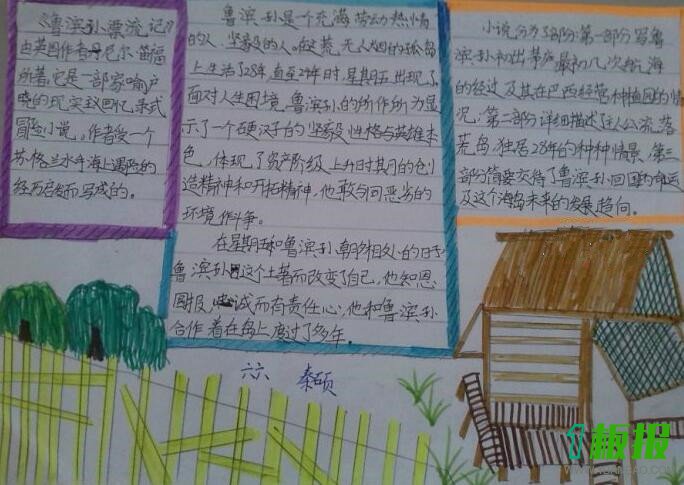 《鲁滨孙漂流记》
由英国作者丹尼尔·笛福
所著。它是一部家喻户
晓的现实主义回忆录式
冒险小说。作者受一个
苏格兰水手海上遇险的
经历启发而写成的。
鲁滨孙是个充满劳动热情
的人,坚毅的人。在这荒无人烟的孤岛
上生活了28年,直至24年时,星期五出现了,
面对人生困境,鲁滨孙的所作所为显
示了一个硬汉子的坚毅性格与英雄本
色,体现了资产阶级上升时其月的创
造精神和开拓精神,他敢与同恶劣的
环境作斗争。
在星期五和鲁滨孙朝夕相处的日子
鲁滨孙因这个土著而改变了自己,他知恩
图报,忠诚而有责任心,他和鲁滨孙
合作着在岛上度过了多年。
小说分为了3部分:第一部分写鲁
滨孙初出茅庐,最初几次航海
的经过及其在巴西经营种植园的情
况;第二部分详细描述主人公流落
荒岛,独居28年的种种情景;第三
部分简要交待了鲁滨孙回国的命运
及这个海岛未来的发展趋向。
六六 秦硕
板报
WWW.1BANBAO.COM